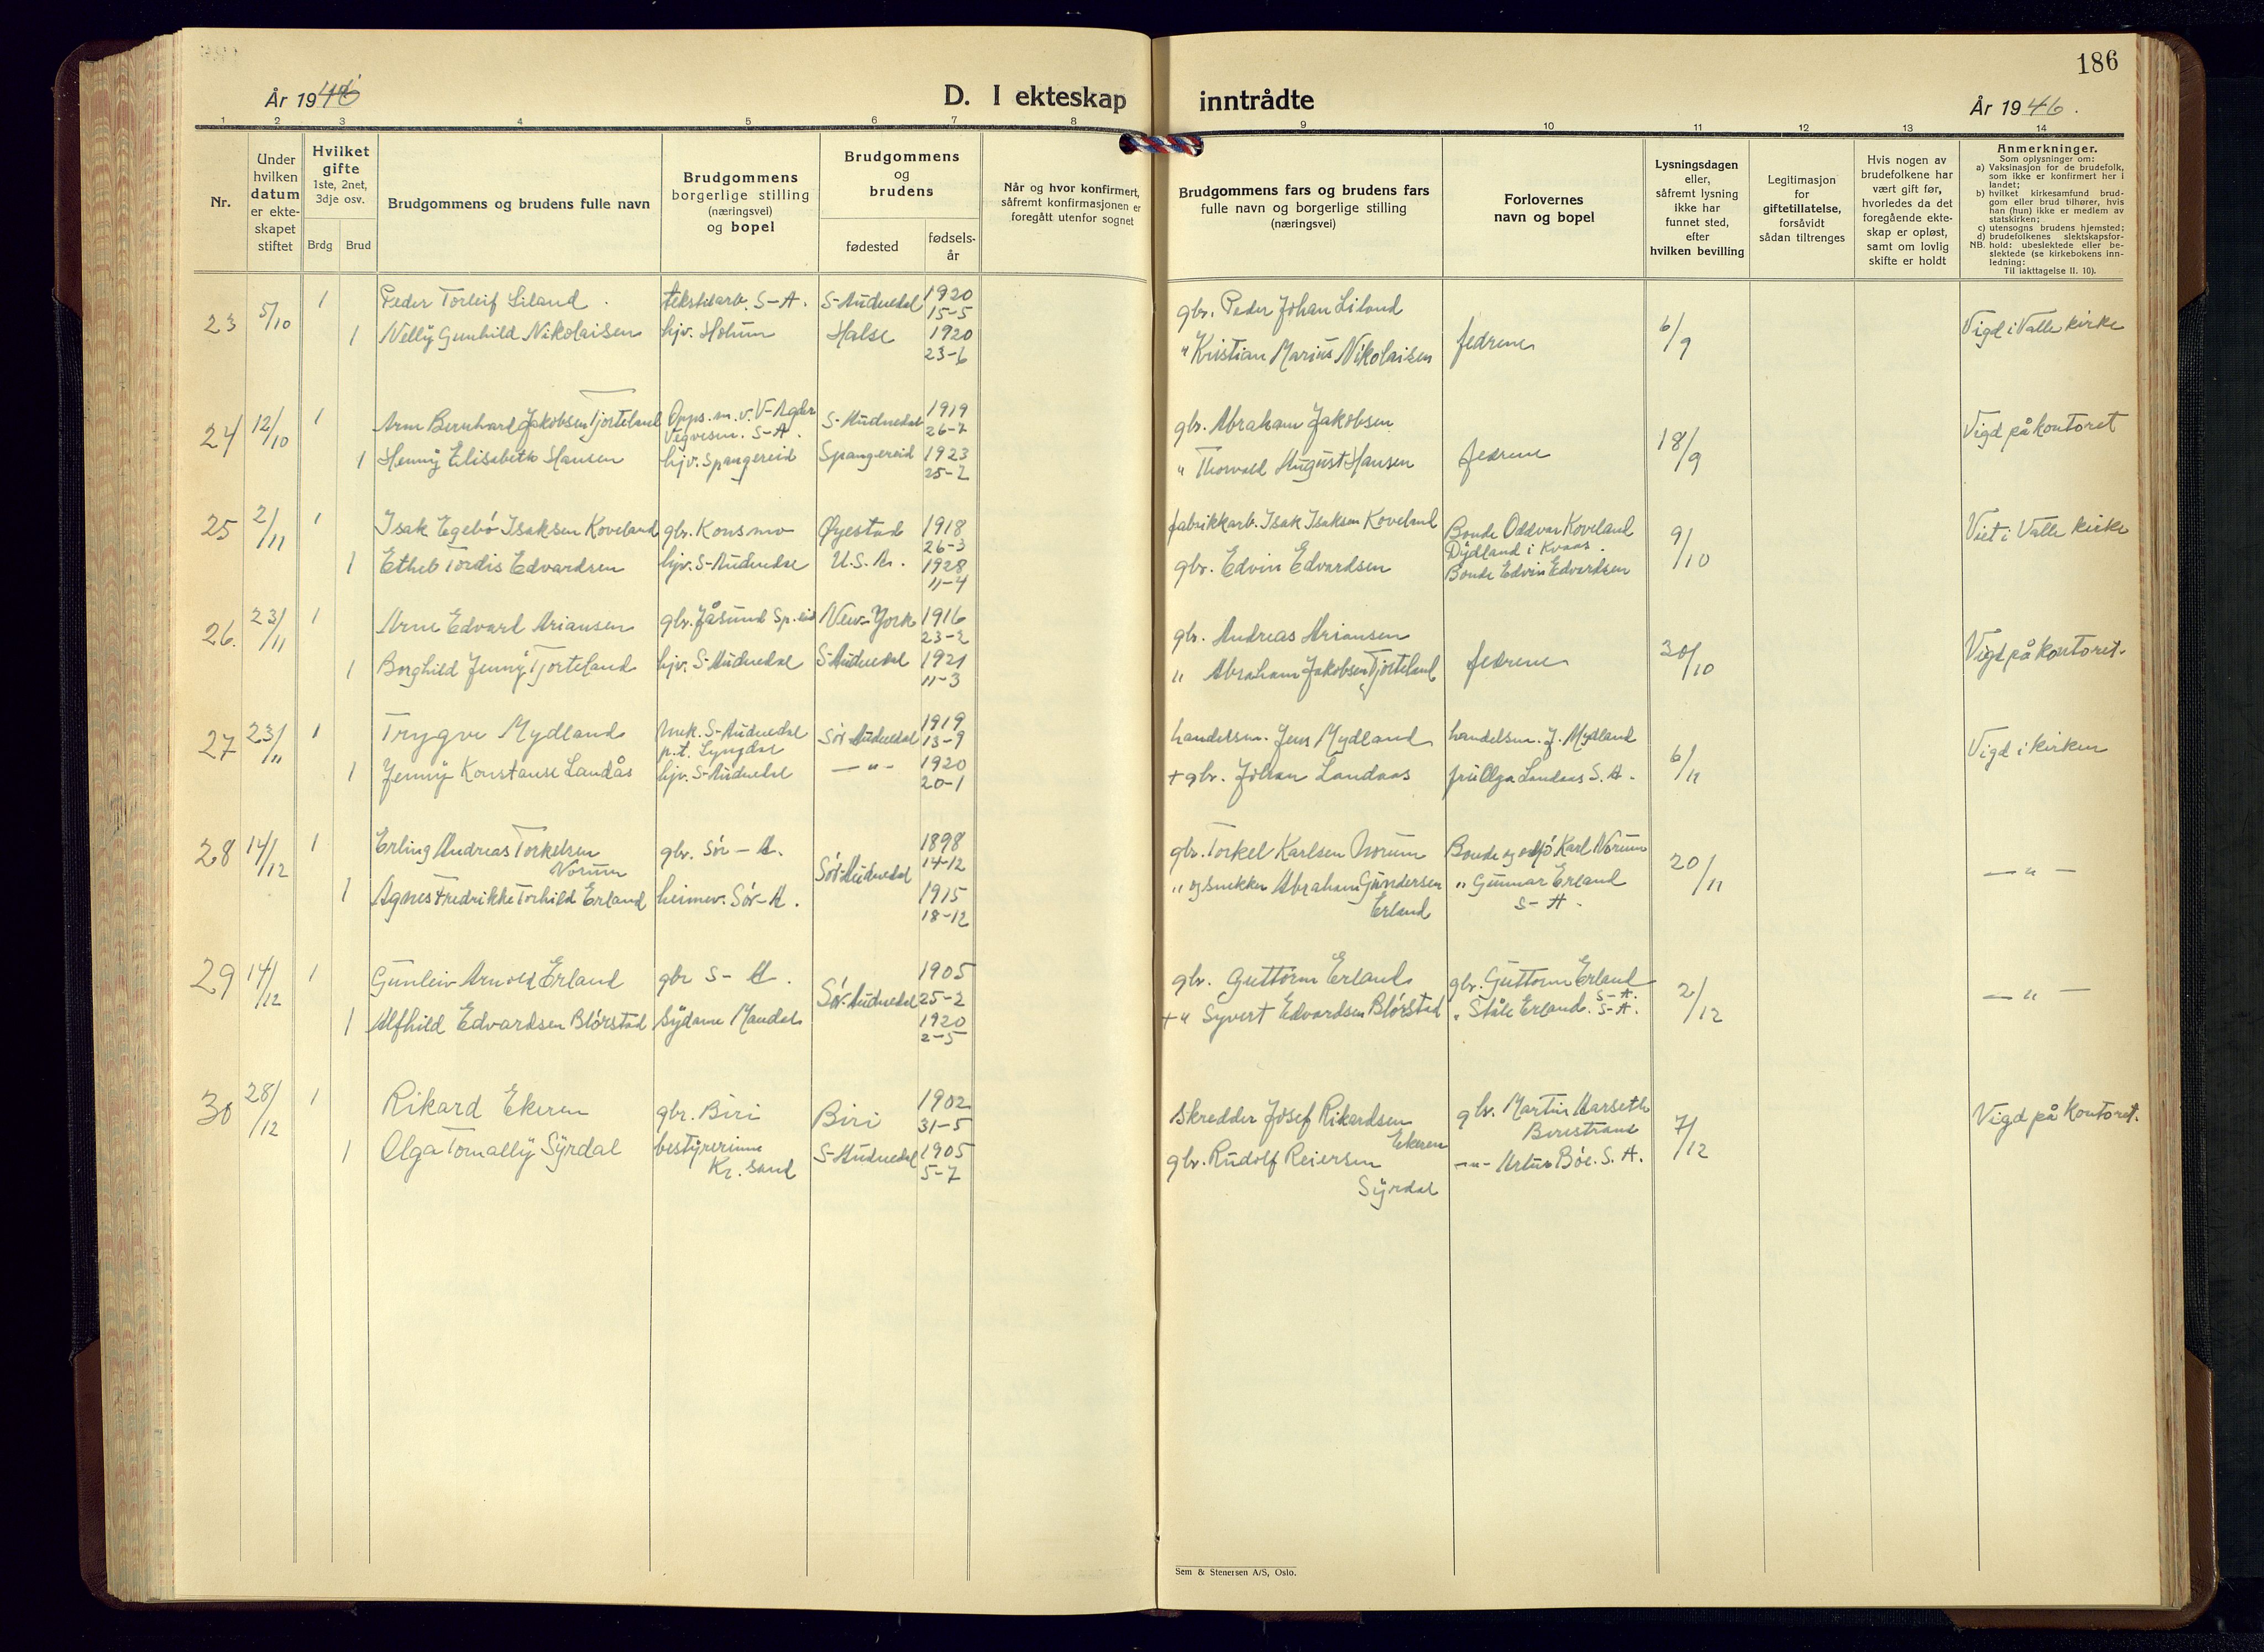 186
År 1946
D. I ekteskap inntrådte
År 1946.
1 2 3 4 5 6 7 8 9 10 11 12 13 14
Nr.
Under
hvilken
datum
er ekte-
skapet
stiftet
Hvilket
gifte
1ste, 2net,
3dje osv.
Brdg Brud
Brudgommens og brudens fulle navn
Brudgommens
borgerlige stilling
(næringsvei)
og bopel
Brudgommens
og
brudens
fødested
fødsels-
år
Når og hvor konfirmert,
såfremt konfirmasjonen er
foregått utenfor sognet
Brudgommens fars og brudens fars
fulle navn og borgerlige stilling
(næringsvei)
Forlovernes
navn og bopel
Lysningsdagen
eller,
såfremt lysning
ikke har
funnet sted,
efter
hvilken bevilling
Legitimasjon
for
giftetillatelse,
forsåvidt
sådan tiltrenges
Hvis nogen av
brudefolkene har
vært gift før,
hvorledes da det
foregående ekte-
skap er opløst,
samt om lovlig
skifte er holdt
Anmerkninger.
Som oplysninger om:
a) Vaksinasjon for de brudefolk,
som ikke er konfirmert her i
landet;
b) hvilket kirkesamfund brud-
gom eller brud tilhører, hvis
han (hun) ikke er medlem av
statskirken;
c) utensogns brudens hjemsted;
d) brudefolkenes slektskapsfor-
NB. hold: ubeslektede eller be-
slektede (se kirkebokens inn-
ledning:
Til iakttagelse II. 10).
23 5/10 1 Peder Torleif Liland tekstilarb. S-A. S-Audnedal 1920 15-5 gbr. Peder Johan Liland fedrene 6/9 Vigd i Valle kirke
1 Nelly Gunhild Nikolaisen hjv. Holum Halse 1920 23-6 " Kristian Marius Nikolaisen
24 12/10 1 Arne Bernhard Jakobsen Tjorteland Opps. m. v. V-Agder Vegvesen. S-A. S-Audnedal 1919 26-7 gbr. Abraham Jakobsen fedrene 18/9 Vigd på kontoret
1 Henny Elisabeth Hansen hjv. Spangereid Spangereid 1923 25-2 " Thorvald August Hansen
25 2/11 1 Isak Egebö Isaksen Koveland gbr. Konsmo Øyestad 1918 26-3 fabrikkarb. Isak Isaksen Koveland Bonde Oddvar Koveland Dydland i Kvaas. 9/10 Viet i Valle kirke
1 Tordis Edvardsen hjv. S-Audnedal U.S.A. 1928 11-4 gbr. Edvin Edvardsen Bonde Edvin Edvardsen
26. 23/11 1 Arne Edvard Ariansen gbr. Jåsund Sp.eid New-York 1916 23-2 gbr. Andreas Ariansen fedrene 30/10 Vigd på kontoret.
1 Borghild Jenny Tjorteland hjv. S-Audnedal S-Audnedal 1921 11-3 " Abraham Jakobsen Tjorteland
27 23/11 1 Trygve Mydland mek. S-Audnedal p.t. Lyngdal Sör Audnedal 1919 13-9 handelsm. Jens Mydland handelsm. J. Mydland 6/11 Vigd i kirken
1 Jenny Konstanse Landås hjv. S-Audnedal — " — 1920 20-1 + gbr. Johan Landaas fru Olga Landaas S. A.
28 14/12 1 Erling Andreas Torkelsen Norum gbr. Sör-A. Sör-Audnedal 1898 14-12 gbr. Torkel Karlsen Norum Bonde og Karl Norum 20/11 — " —
1 Agnes Fredrikke Torhild Erland heimev. Sör-A. 1915 18-12 " og snekker Abraham Gundersen Erland " Gunnar Erland S-A.
29 14/12 1 Gunleiv Arnold Erland gbr S-A. Sör-Audnedal 1905 25-2 gbr. Guttorm Erland gbr. Guttorm Erland S-A. 2/12 — " —
1 Alfhild Edvardsen Blörstad sydame Mandal 1920 2-5 + " Syvert Edvardsen Blörstad " Ståle Erland. S-A.
30 28/12 1 Rikard Ekeren gbr. Biri Biri 1902 31-5 skredder Josef Rikardsen Ekeren gbr. Martin Aarseth Biristrand 7/12 Vigd på kontoret.
1 Olga Tomally Syrdal bestyrerinne Kr. sand S-Audnedal 1905 5-7 gbr. Rudolf Reiersen Syrdal — " — Artur Böe. S. A.
Sem & Stenersen A/S, Oslo.